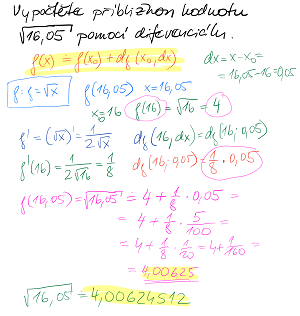 Vypočtěte přibližnou hodnotu
√16,05 pomocí diferenciálu.
f(x) = f(x₀) + df(x₀,dx) dx = x-x₀=
= 16,05-16=0,05
f: f=√x f(16,05) x=16,05
x₀=16 f(16)=√16 = 4
f' = (√x)' = 1/(2√x) df(16,dx) = df(16; 0,05)
f'(16) = 1/(2√16) = 1/8 df(16; 0,05) = 1/8 · 0,05
f(16,05) = √16,05 = 4 + 1/8 · 0,05 =
= 4 + 1/8 · 5/100 =
= 4 + 1/8 · 1/20 = 4 + 1/160 =
= 4,00625
√16,05 = 4,00624512